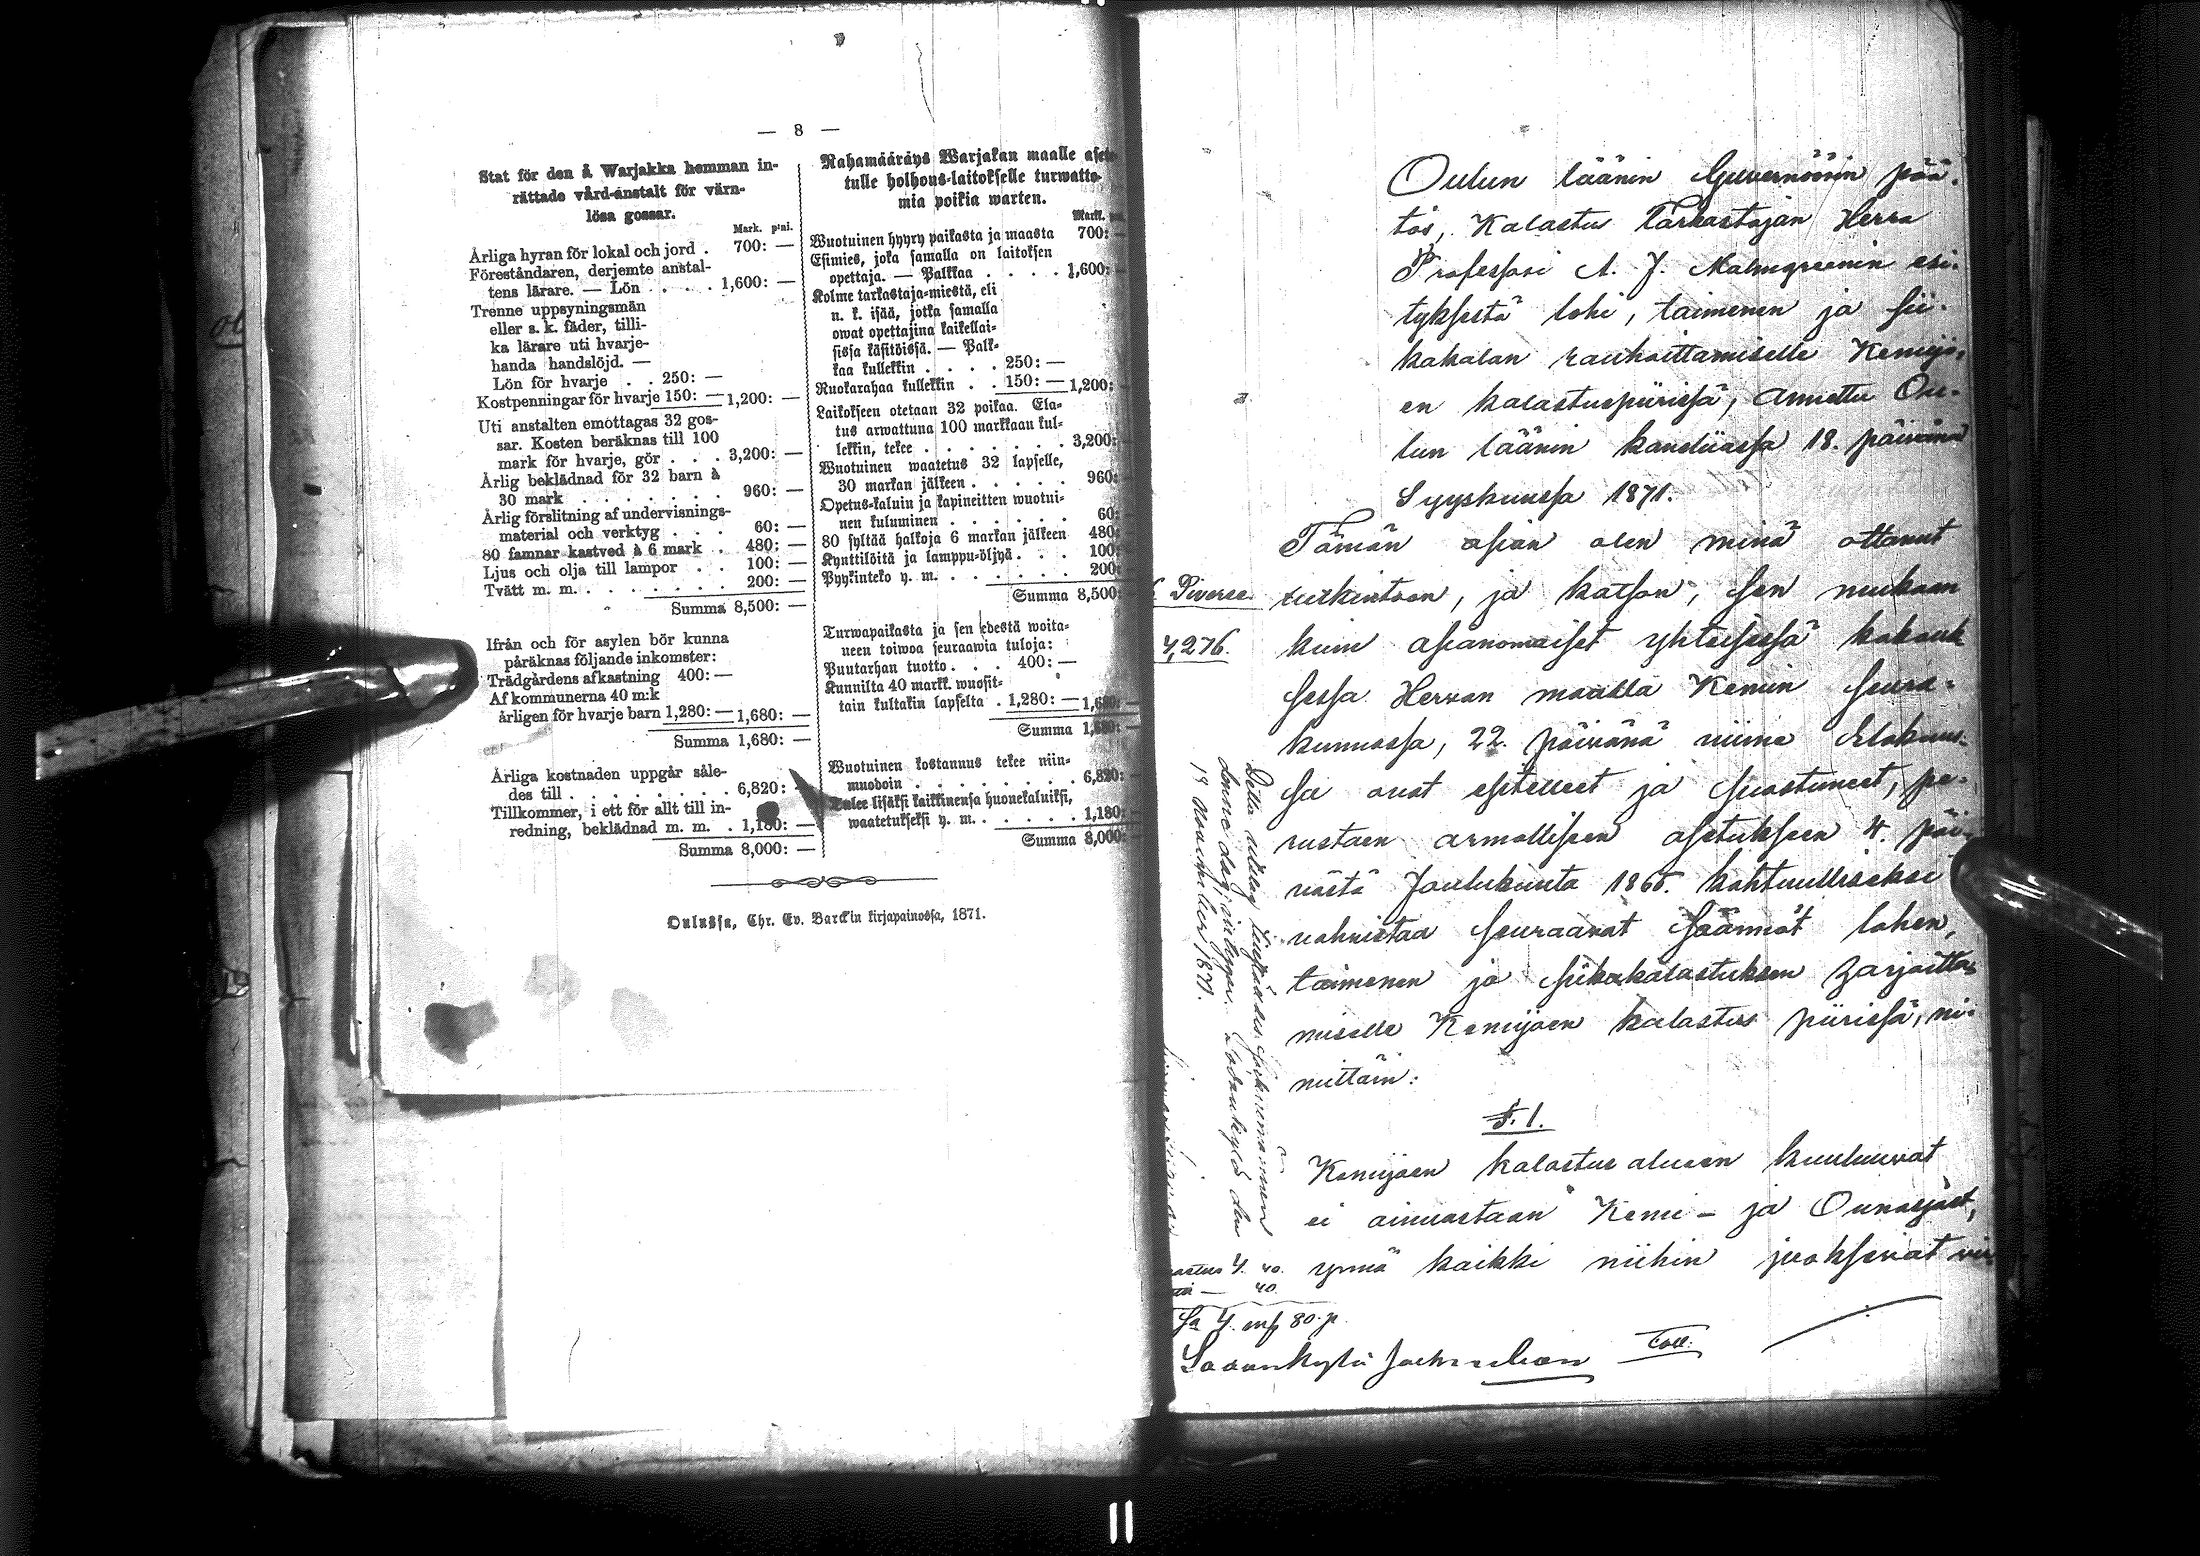 — 8 —
Stat för den å Warjakka hemman in-
rättade vård-anstalt för värn-
lösa gossar.
Mark. p:ni.
Årliga hyran för lokal och jord . 700: —
Föreståndaren, derjemte anstal-
tens lärare. — Lön . . . 1,600: —
Trenne uppsyningsmän
eller s. k. fäder, tilli-
ka lärare uti hvarje-
handa handslöjd. —
Lön för hvarje . . 250: —
Kostpenningar för hvarje 150: — 1,200: —
Uti anstalten emottagas 32 gos-
sar. Kosten beräknas till 100
mark för hvarje, gör . . . 3,200: —
Årlig beklädnad för 32 barn à
30 mark . . . . . . . 960: —
Årlig förslitning af undervisnings-
material och verktyg . . . 60: —
80 famnar kastved à 6 mark . 480: —
Ljus och olja till lampor . . 100: —
Tvätt m. m. . . . . . . . 200: —
Summa 8,500: —
Ifrån och för asylen bör kunna
påräknas följande inkomster:
Trädgårdens afkastning 400: —
Af kommunerna 40 m:k
årligen för hvarje barn 1,280: — 1,680: —
Summa 1,680: —
Årliga kostnaden uppgår såle-
des till . . . . . . . 6,820: —
Tillkommer, i ett för allt till in-
redning, beklädnad m. m. . 1,180: —
Summa 8,000: —
Rahamääräys Warjakan maalle asete-
tulle holhous-laitokselle turwatto-
mia poikia warten.
Markk.
Wuotuinen hyyry paikasta ja maasta 700: —
Esimies, joka samalla on laitoksen
opettaja. — Palkkaa . . . . 1,600: —
Kolme tarkastaja-miestä, eli
n. k. isää, jotka samalla
owat opettajina kaikellai-
sissa käsitöissä. — Palk-
kaa kullekkin . . . . 250: —
Ruokarahaa kullekkin . . 150: — 1,200: —
Laitokseen otetaan 32 poikaa. Ela-
tus arwattuna 100 markkaan kul-
lekkin, tekee . . . . . . 3,200:
Wuotuinen waatetus 32 lapselle,
30 markan jälkeen . . . . . 960:
Opetus-kaluin ja kapineitten wuotui-
nen kuluminen . . . . . . 60:
80 syltää halkoja 6 markan jälkeen 480:
Kynttilöitä ja lamppu-öljyä . . . 100:
Pyykinteko y. m. . . . . . . 200:
Summa 8,500:
Turwapaikasta ja sen edestä woita-
neen toiwoa seuraawia tuloja:
Puutarhan tuotto . . . 400: —
Kunnilta 40 markk. wuosit-
tain kultakin lapselta . 1,280: — 1,680: —
Summa 1,680: —
Wuotuinen kostannus tekee niin-
muodoin . . . . . . . 6,820:
Tulee lisäksi kaikkinensa huonekaluiksi,
waatetukseksi y. m. . . . . . 1,180:
Summa 8,000:
Oulussa, Chr. Ev. Barckin kirjapainossa, 1871.
Oulun läänin Guvernöörin pää-
tös, Kalastus Tarkastajan Herra
Professori A. J. Malmgreenin esi-
tyksestä lohi, taimenen ja sii-
kakalan rauhoittamiselle Kemijo-
en kalastuspiirissä, annettu Ou-
lun läänin kansliassa 18. päivänä
Syyskuussa 1871.
Tämän asian olen minä ottanut
tutkintoon, ja katson, sen mukaan
kuin asianomaiset yhteisessä kokouk
sessa Hervan maalla Kemin seura-
kunnassa, 22. päivänä viime Elokuus-
sa ovat esitelleet ja suostuneet, pe-
rustaen armolliseen asetukseen 4. päi-
västä Joulukuuta 1865. kohtuulliseksi
vahvistaa seuraavat säännöt lohen,
taimenen ja siikakalastuksen harjoitta-
miselle Kemijoen kalastus piirissä, ni-
mittäin:
§. 1.
Kemijoen kalastus alueen kuuluuvat
ei ainuastaan Kemi- ja Ounasjoet,
ynnä kaikki niihin juoksevat
Diverse.
4,276.
denne dag, intygar. Sodankylä den
19 November 1871.
4. 40.
— 40.
Sa 4. mk 80. p.
Sodankylä
Coll.